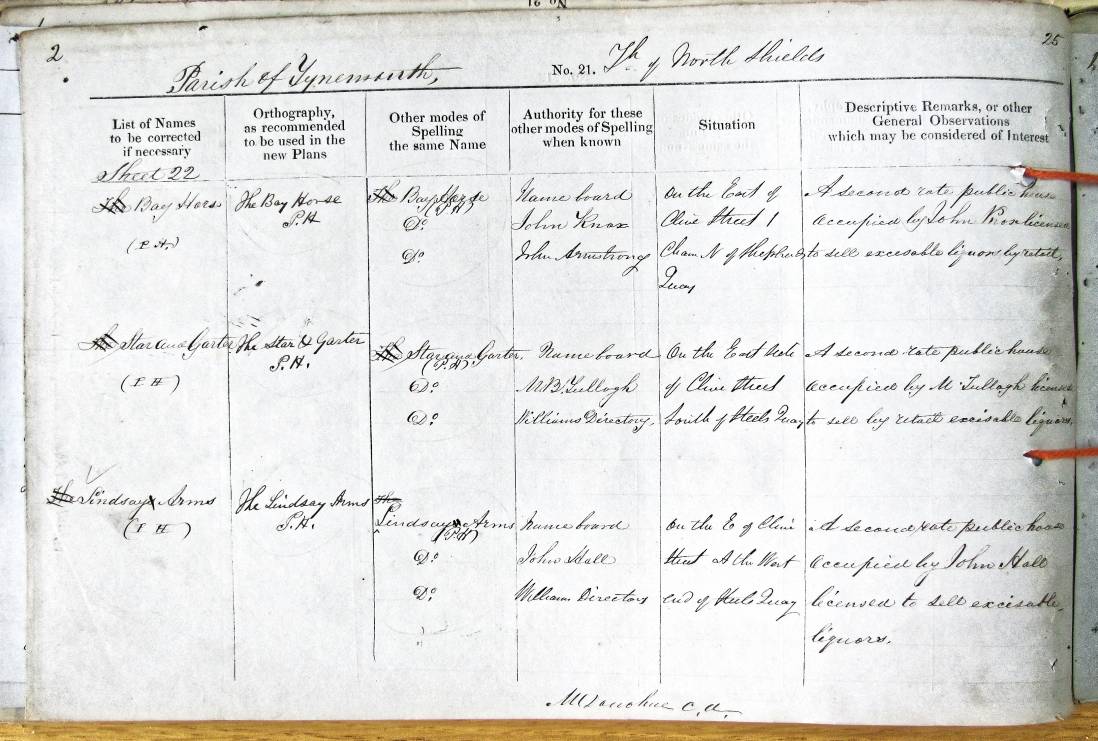 2
25
Parish of Tynemouth,
No. 21.
Th of North Shields
List of Names to be corrected if necessary
Orthography, as recommended to be used in the new Plans
Other modes of Spelling the same Name
Authority for these other modes of Spelling when known
Situation
Descriptive Remarks, or other General Observations which may be considered of Interest
Sheet 22
The Bay Horse
(P H)
The Bay Horse
P.H
The Bay Horse
(P.H)
Do
Do
Name board
John Knox
John Armstrong
On the East of
Clive Street 1
Chain N of Shepherds
Quay
A second rate public house
occupied by John Knox licensed
to sell excisable liquors by retail,
The Star and Garter
(P H)
The Star & Garter
P.H.
The Star and Garter,
(P.H)
Do
Do
Name board
Williams Directory,
On the East side
of Clive Street
South of Steels Quay
A second rate public house
occupied by M Tullogh licensed
to sell by retail excisable liquors,
The Lindsays Arms
(P H)
The Lindsay Arms
P.H.
The
Lindsays Arms
(P.H)
Do
Do
Name board
John Hall
Williams Directory
On the E of Clive
Street at the West
end of Steels Quay
A second rate public house
occupied by John Hall
licensed to sell excisable,
liquors.
McDonohue C.A.